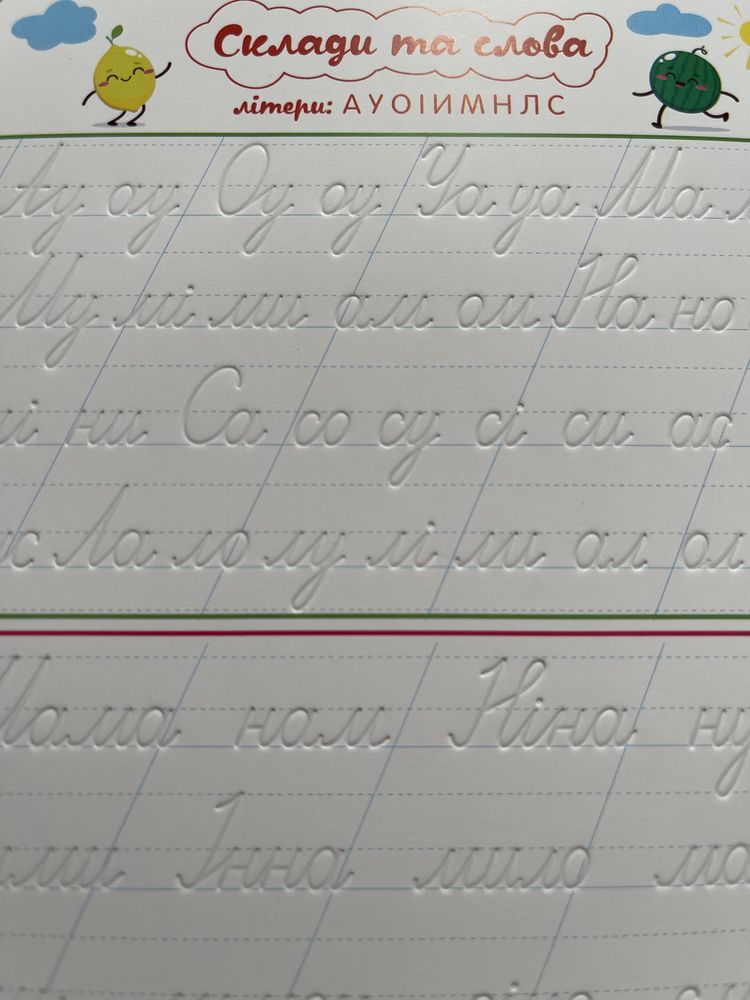 Склади та слова
літери: А У О І И М Н Л С
Ау ау Оу оу Уа уа Ма
Му мі ми ам ом На но
ні ни Са со су сі си ас
Ла ло лу лі ли ал ол
Мама нам Ніна
Інна мило